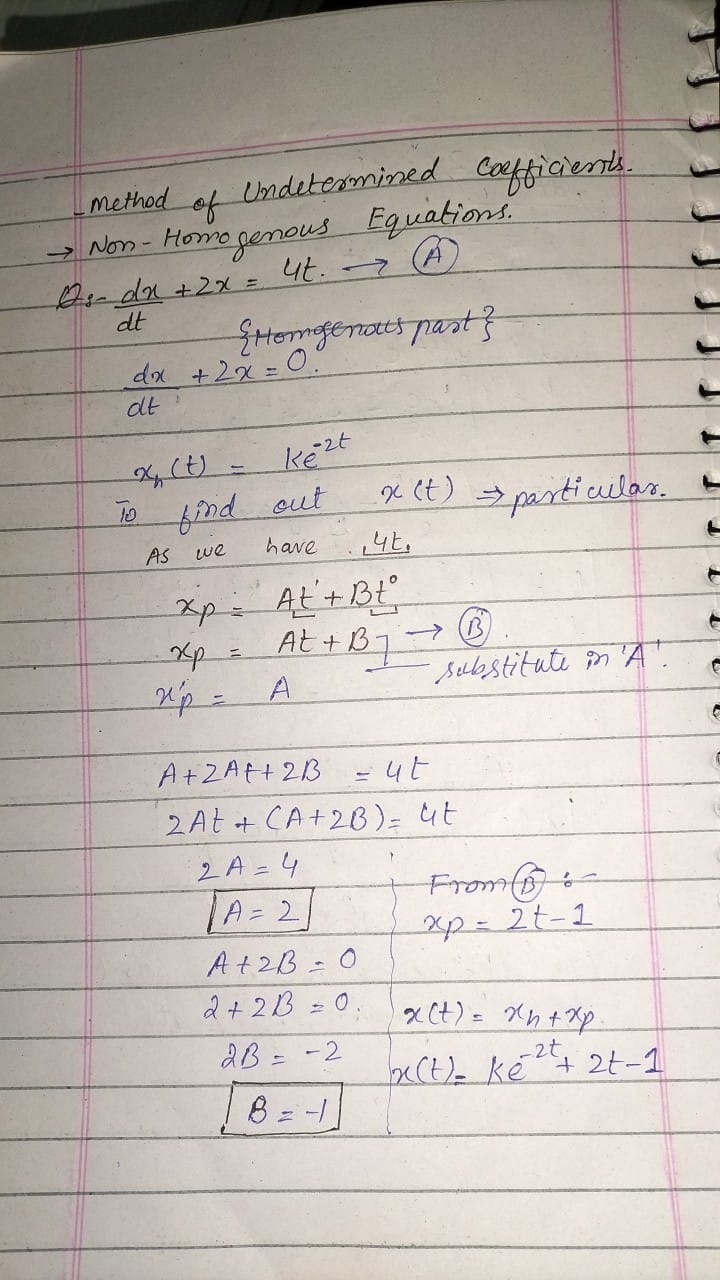 - Method of Undetermined Coefficients.
→ Non-Homogenous Equations.
Q:- dx/dt + 2x = 4t. → (A)
{Homogenous part}
dx/dt + 2x = 0.
xₕ(t) = ke⁻²ᵗ
To find out x(t) ⇒ particular.
As we have 4t.
xp = At¹ + Bt⁰
xp = At + B → (B)
substitute in 'A'.
x'p = A
A+2At+2B = 4t
2At + (A+2B) = 4t
2A = 4
A = 2
A+2B = 0
2+2B = 0.
2B = -2
B = -1
From (B) :-
xp = 2t-1
x(t) = xh + xp.
x(t) = ke⁻²ᵗ + 2t-1